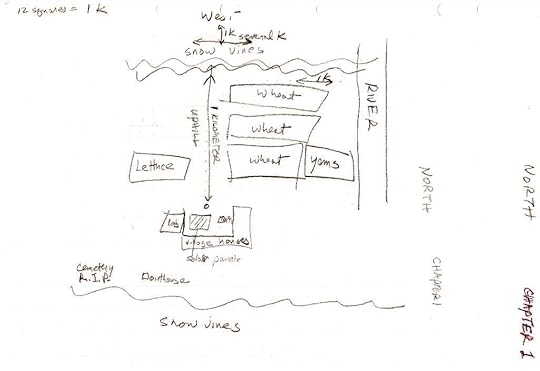 12 squares = 1 K
West
1K several K
snow vines
1K
wheat
RIVER
UPHILL
1 KILOMETER
wheat
Lettuce
wheat
yams
NORTH
NORTH
village houses
solar panels
Cemetery
R.I.P.
CHAPTER 1
CHAPTER 1
snow vines